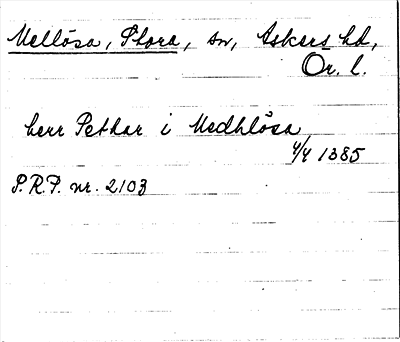 Mellösa, Stora, sn, Askers hd,
Ör. l.
herr Pethar i Medhlösa
4/4 1385
P.R.P. nr. 2103